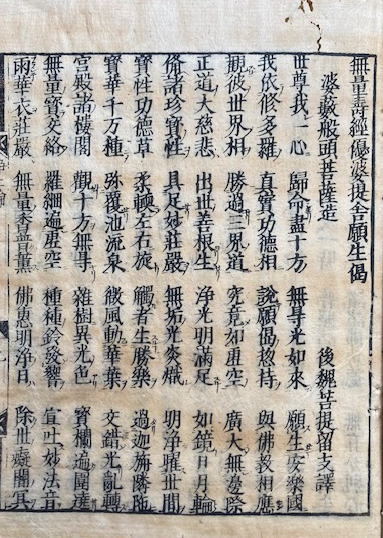 無量壽經優婆提舍願生偈
婆藪般頭菩薩造 後魏菩提留支譯
世尊我一心 歸命盡十方 無㝵光如來 願生安樂國
我依修多羅 真實功德相 說願偈捴持 與佛教相應
觀彼世界相 勝過三界道 究竟如虛空 廣大無邊際
正道大慈悲 出世善根生 淨光明滿足 如鏡日月輪
備諸珍寶性 具足妙莊嚴 無垢光炎熾 明淨曜世間
寶性功德草 柔軟左右旋 觸者生勝樂 過迦旃隣陀
寶華千万種 彌覆池流泉 微風動華葉 交錯光亂轉
宮殿諸樓閣 觀十方無㝵 雜樹異光色 寶欄遍圍遶
無量寶交絡 羅網遍虛空 種種鈴發響 宣吐妙法音
雨華衣莊嚴 無量香普薰 佛惠明淨日 除世癡闇冥